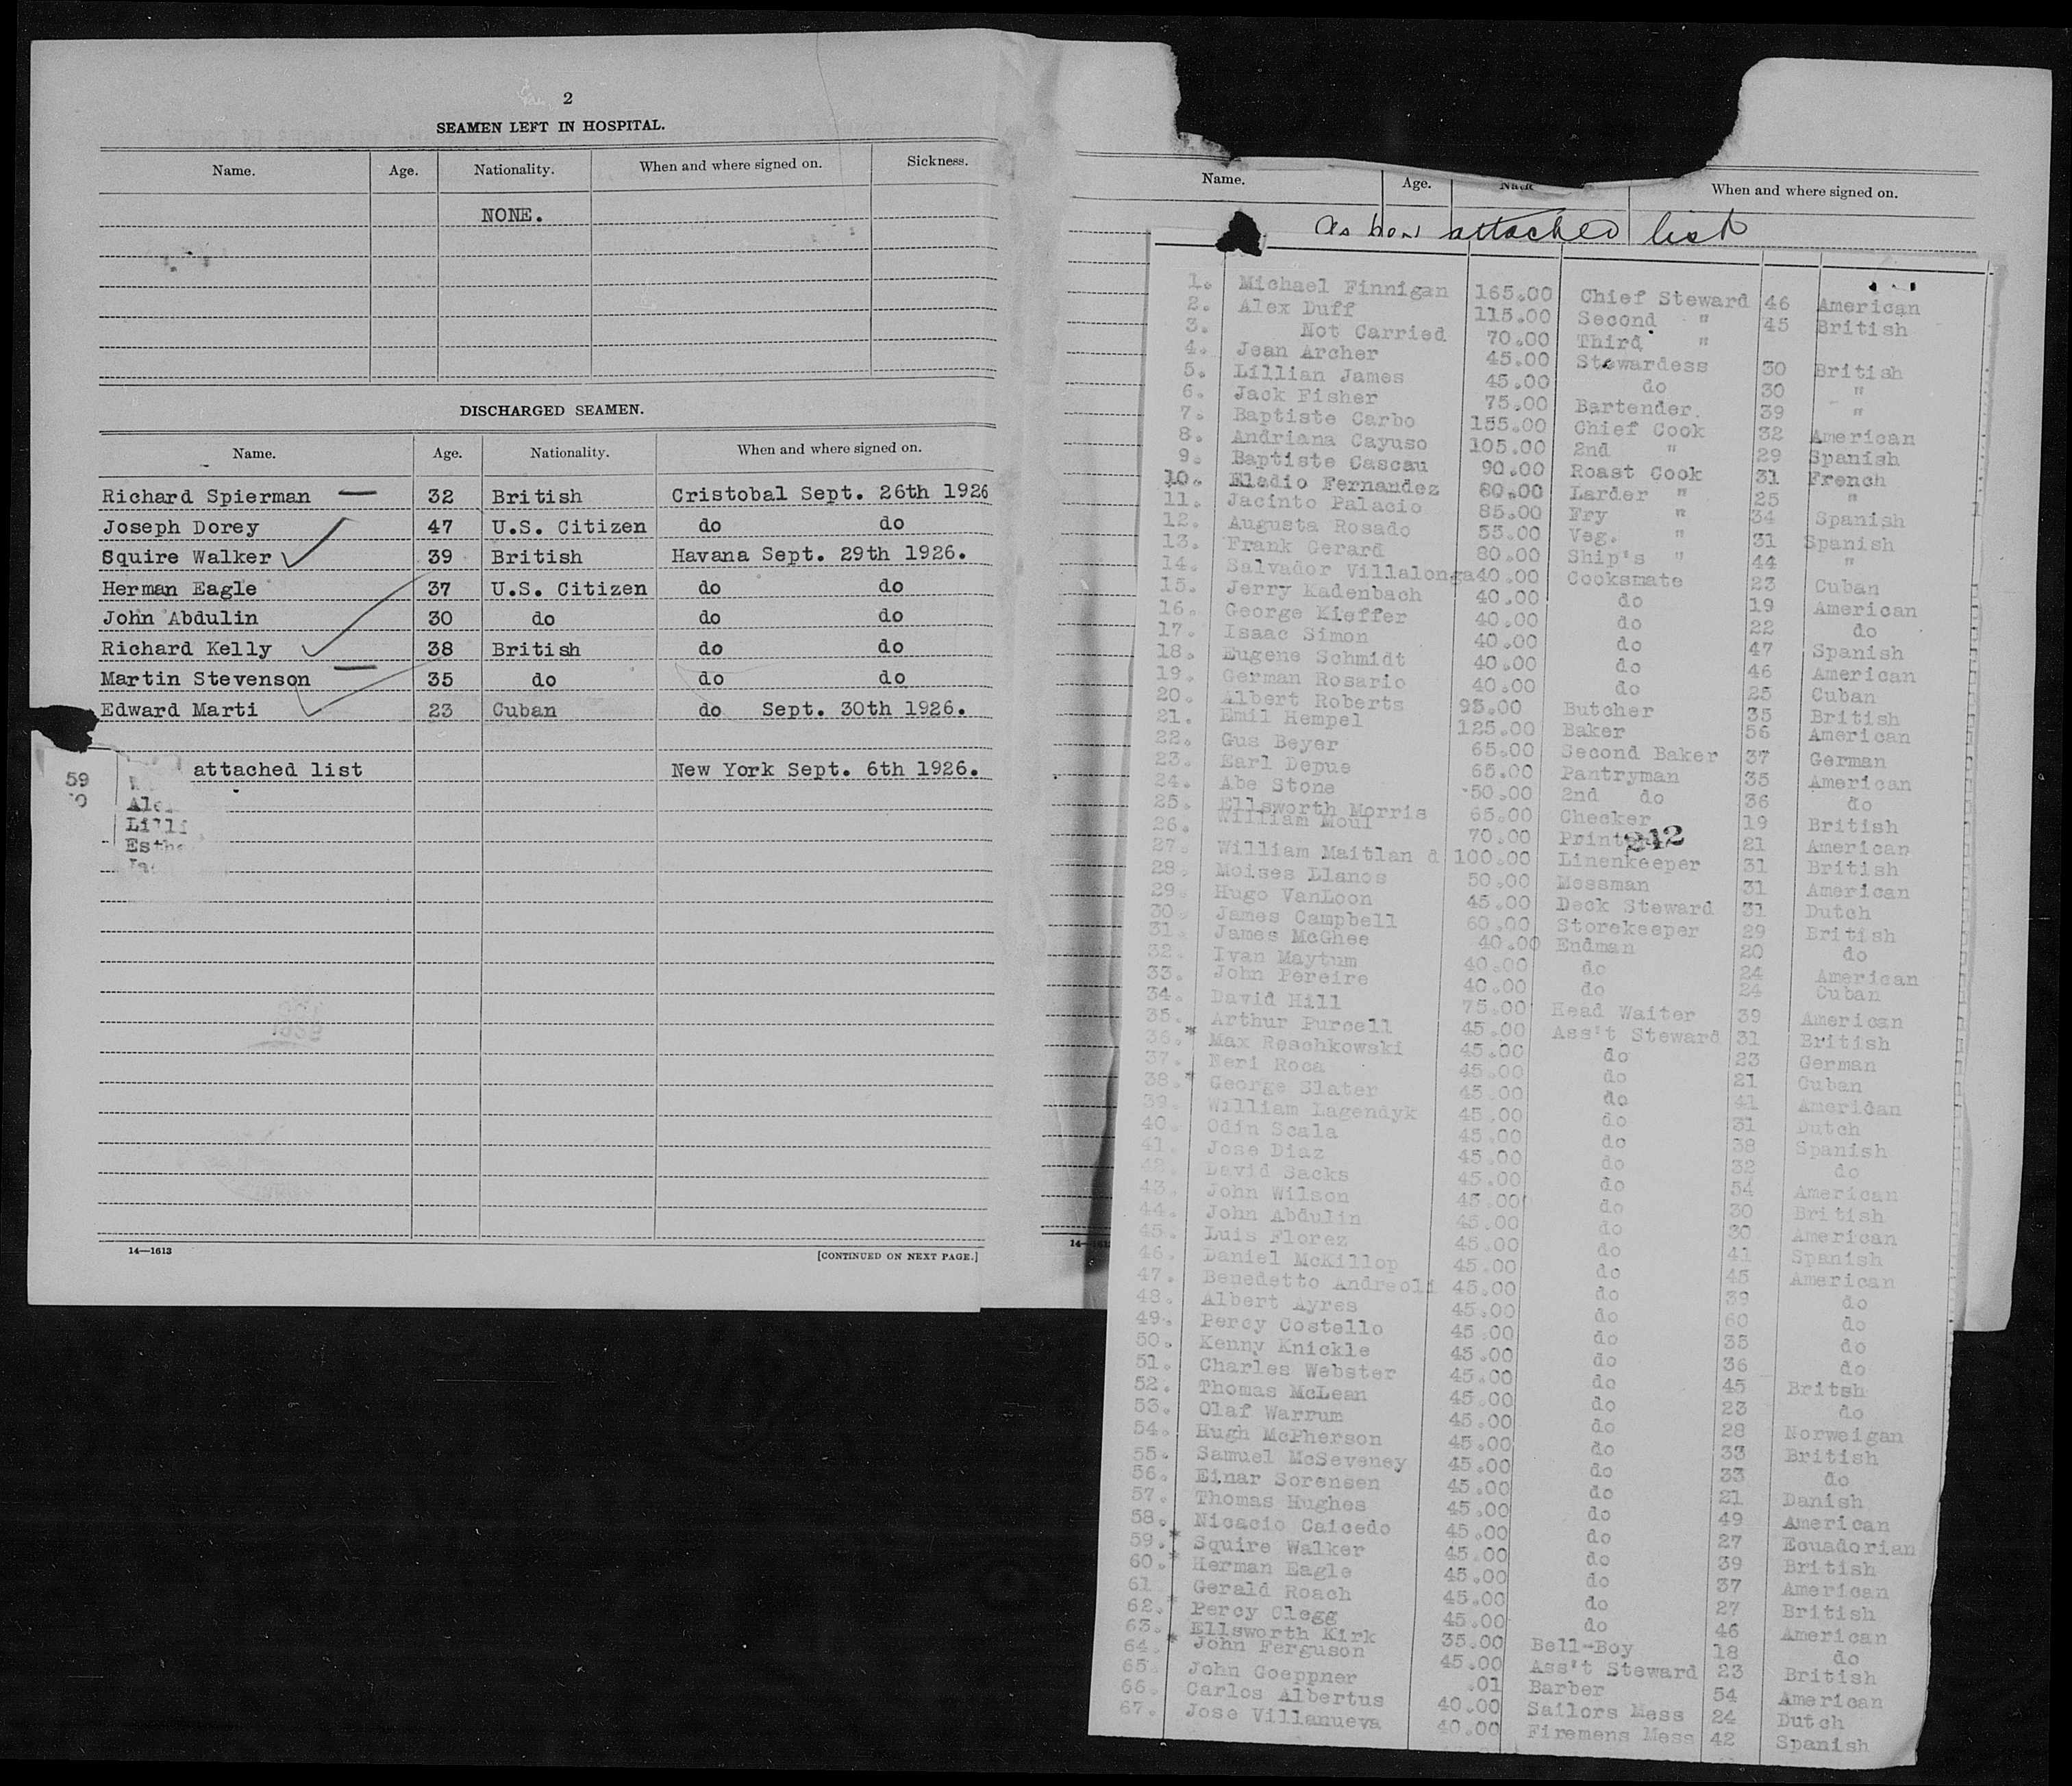 2
SEAMEN LEFT IN HOSPITAL.
Name. Age. Nationality. When and where signed on. Sickness.
NONE.
DISCHARGED SEAMEN.
Name. Age. Nationality. When and where signed on.
Richard Spierman 32 British Cristobal Sept. 26th 1926
Joseph Dorey 47 U.S. Citizen do do
Squire Walker 39 British Havana Sept. 29th 1926.
Herman Eagle 37 U.S. Citizen do do
John Abdulin 30 do do do
Richard Kelly 38 British do do
Martin Stevenson 35 do do do
Edward Marti 23 Cuban do Sept. 30th 1926.
attached list New York Sept. 6th 1926.
59
14—1613
[CONTINUED ON NEXT PAGE.]
Name. Age. When and where signed on.
attached list
1. Michael Finnigan 165.00 Chief Steward 46 American
2. Alex Duff 115.00 Second " 45 British
3. Not Carried 70.00 Third "
4. Jean Archer 45.00 Stewardess 30 British
5. Lillian James 45.00 do 30 "
6. Jack Fisher 75.00 Bartender. 39 "
7. Baptiste Carbo 155.00 Chief Cook 32 American
8. Andriana Cayuso 105.00 2nd " 29 Spanish
9. Baptiste Cascau 90.00 Roast Cook 31 French
10. Eladio Fernandez 80.00 Larder " 25 "
11. Jacinto Palacio 85.00 Fry " 34 Spanish
12. Augusta Rosado 55.00 Veg. " 31 Spanish
13. Frank Gerard 80.00 Ship's " 44 "
14. Salvador Villalonga 40.00 Cooksmate 23 Cuban
15. Jerry Kadenbach 40.00 do 19 American
16. George Kieffer 40.00 do 22 do
17. Isaac Simon 40.00 do 47 Spanish
18. Eugene Schmidt 40.00 do 46 American
19. German Rosario 40.00 do 25 Cuban
20. Albert Roberts 95.00 Butcher 35 British
21. Emil Hempel 125.00 Baker 56 American
22. Gus Beyer 65.00 Second Baker 37 German
23. Earl Depue 65.00 Pantryman 35 American
24. Abe Stone 50.00 2nd do 36 do
25. Ellsworth Morris 65.00 Checker 19 British
26. William Moul 70.00 Print 242 21 American
27. William Maitlan d 100.00 Linenkeeper 31 British
28. Moises Llanos 50.00 Messman 31 American
29. Hugo VanLoon 45.00 Deck Steward 31 Dutch
30. James Campbell 60.00 Storekeeper 29 British
31. James McGhee 40.00 Endman 20 do
32. Ivan Maytum 40.00 do 24 American
33. John Pereire 40.00 do 24 Cuban
34. David Hill 75.00 Head Waiter 39 American
35. Arthur Purcell 45.00 Ass't Steward 31 British
36.* Max Reschkowski 45.00 do 23 German
37. Neri Roca 45.00 do 21 Cuban
38.* George Slater 45.00 do 41 American
39. William Lagendyk 45.00 do 31 Dutch
40. Odin Scala 45.00 do 38 Spanish
41. Jose Diaz 45.00 do 32 do
42. David Sacks 45.00 do 54 American
43. John Wilson 45.00 do 30 British
44. John Abdulin 45.00 do 30 American
45. Luis Florez 45.00 do 41 Spanish
46. Daniel McKillop 45.00 do 45 American
47. Benedetto Andreoli 45.00 do 39 do
48. Albert Ayres 45.00 do 60 do
49. Percy Costello 45.00 do 35 do
50. Kenny Knickle 45.00 do 36 do
51. Charles Webster 45.00 do 45 Britsh
52. Thomas McLean 45.00 do 23 do
53. Olaf Warrum 45.00 do 28 Norweigan
54. Hugh McPherson 45.00 do 33 British
55. Samuel McSeveney 45.00 do 33 do
56. Einar Sorensen 45.00 do 21 Danish
57. Thomas Hughes 45.00 do 49 American
58. Nicacio Caicedo 45.00 do 27 Ecuadorian
59.* Squire Walker 45.00 do 39 British
60.* Herman Eagle 45.00 do 37 American
61 Gerald Roach 45.00 do 27 British
62.* Percy Clegg 45.00 do 46 American
63. Ellsworth Kirk 35.00 Bell-Boy 18 do
64.* John Ferguson 45.00 Ass't Steward 23 British
65. John Goeppner .01 Barber 54 American
66. Carlos Albertus 40.00 Sailors Mess 24 Dutch
67. Jose Villanueva 40.00 Firemens Mess 42 Spanish